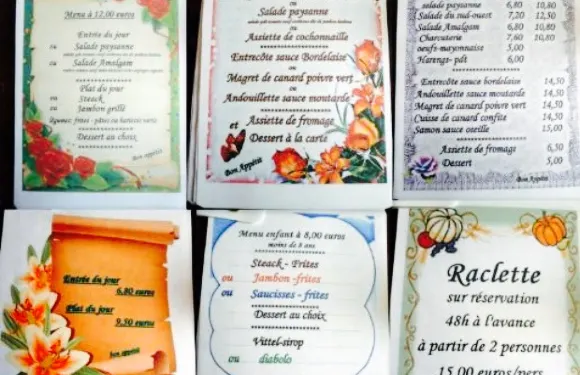 Menu à 12,00 euros
Entrée du jour
ou Salade paysanne
ou Salade Amalgam
Plat du jour
ou Steack
ou Jambon grillé
légumes: frites - pâtes ou haricots verts
Dessert au choix
Bon Appétit
ou
Salade paysanne
ou
Assiette de cochonnaille
Entrecôte sauce Bordelaise
ou
Magret de canard poivre vert
ou
Andouillette sauce moutarde
Assiette de fromage
et
Dessert à la carte
Bon Appétit
salade paysanne 6,80 10,80
Salade du sud-ouest 7,20 12,50
Salade Amalgam 6,80 10,80
Charcuterie 7,60 10,80
oeufs-mayonnaise 5,00
Harengs- pdt 6,00
Entrecôte sauce bordelaise 14,50
Andouillette sauce moutarde 14,50
Magret de canard poivre vert 14,50
Cuisse de canard confite 14,50
Samon sauce oseille 15,00
Assiette de fromage 6,50
Dessert 5,00
Bon Appétit
Entrée du jour
6,80 euros
Plat du jour
9,50 euros
bon appétit
Menu enfant à 8,00 euros
moins de 8 ans
Steack - Frites
ou Jambon -frites
ou Saucisses - frites
Dessert au choix
Vittel-sirop
ou diabolo
Raclette
sur réservation
48h à l'avance
à partir de 2 personnes
15,00 euros/pers